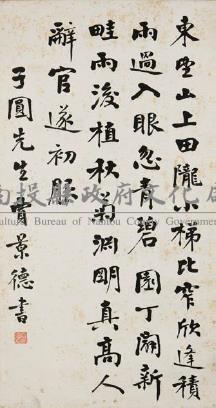 東望山上田隴梯比窄欣逢積
雨過入眼忽青碧園丁闢新
畦雨後植秋菊淵明真高人
辭官遂初
子圓先生 賈景德書
南投縣政府文化局
Cultural Bureau of Nantou County Government